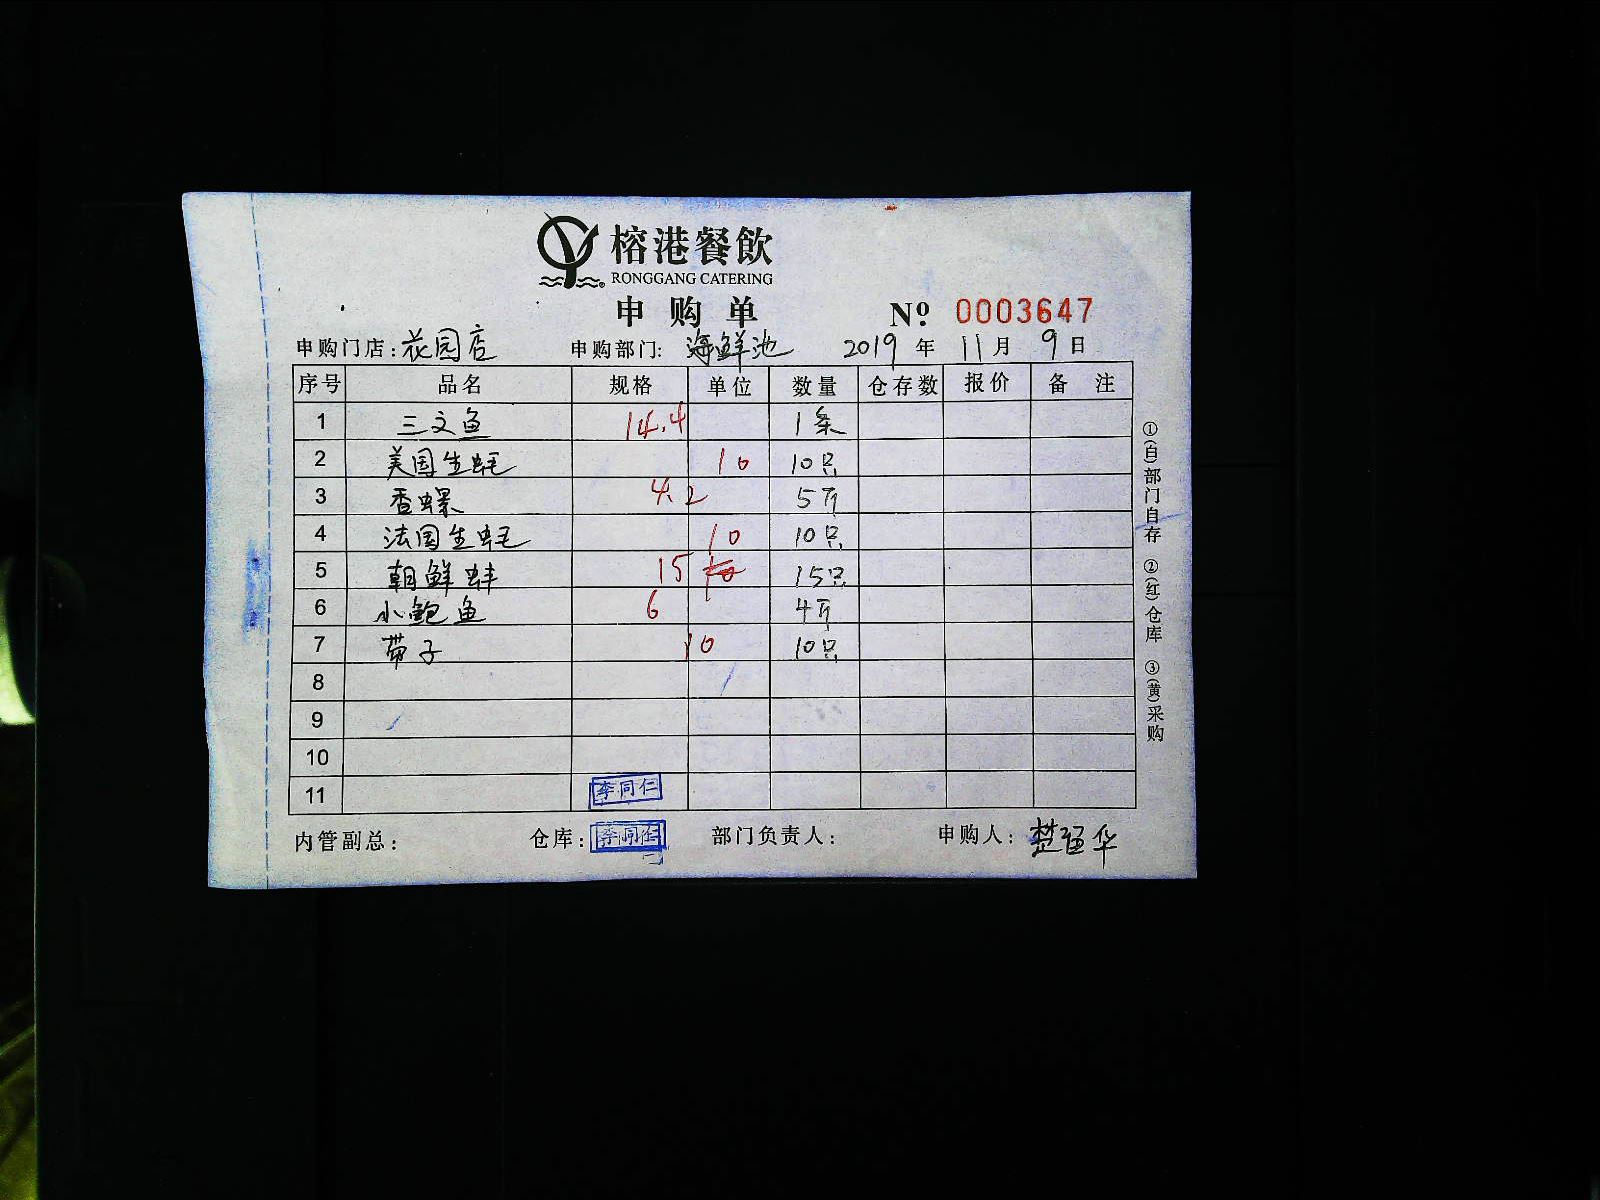 榕港餐飲
RONGGANG CATERING
申购单 Nº 0003647
申购门店: 花园店 申购部门: 海鲜池 2019 年 11 月 9 日
序号 品名 规格 单位 数量 仓存数 报价 备注
1 三文鱼 14.4 1条
2 美国生蚝 10 10只
3 香螺 4.2 5斤
4 法国生蚝 10 10只
5 朝鲜蚌 15 15只
6 小鲍鱼 6 4斤
7 带子 10 10只
8
9
10
11 李同仁
内管副总: 仓库: 李同仁 部门负责人: 申购人:
①(白)部门自存 ②(红)仓库 ③(黄)采购